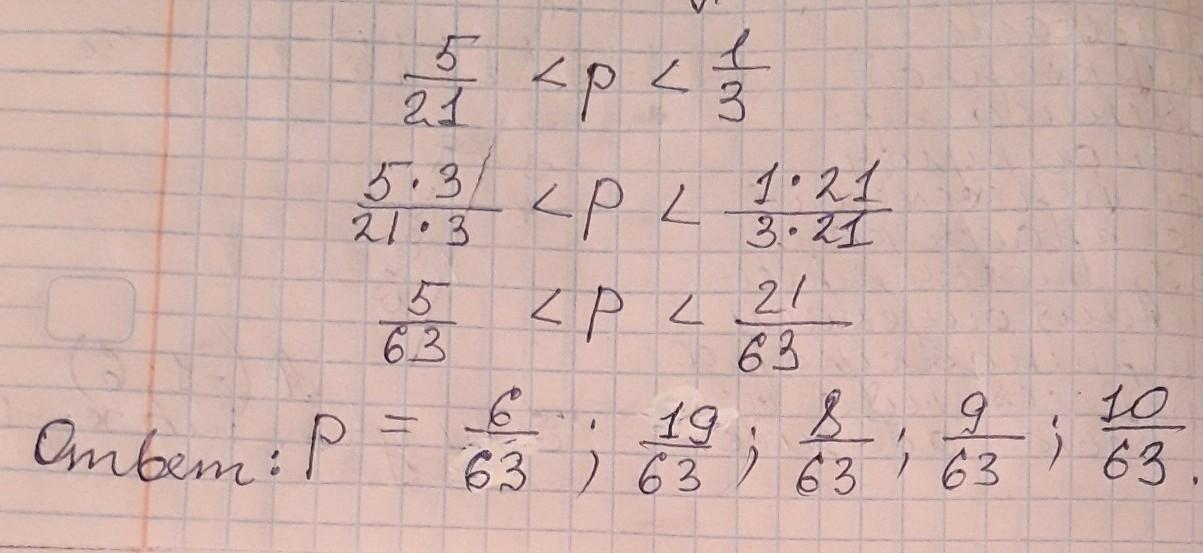 5/21 < p < 1/3
5·3/21·3 < p < 1·21/3·21
5/63 < p < 21/63
Ответ: p = 6/63; 19/63; 8/63; 9/63; 10/63.